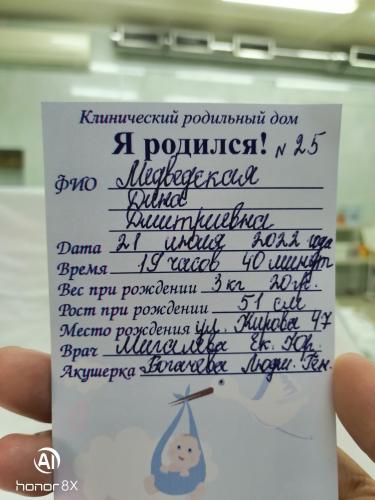 Клинический родильный дом
Я родился! N 25
ФИО Медведская
Дина
Дмитриевна
Дата 21 июня 2022 года
Время 19 часов 40 минут
Вес при рождении 3 кг 20 г.
Рост при рождении 51 см
Место рождения ул. Кирова 47
Врач Мигалева Ек. Юр.
Акушерка Богачева Людм. Ген.
AI
honor 8X